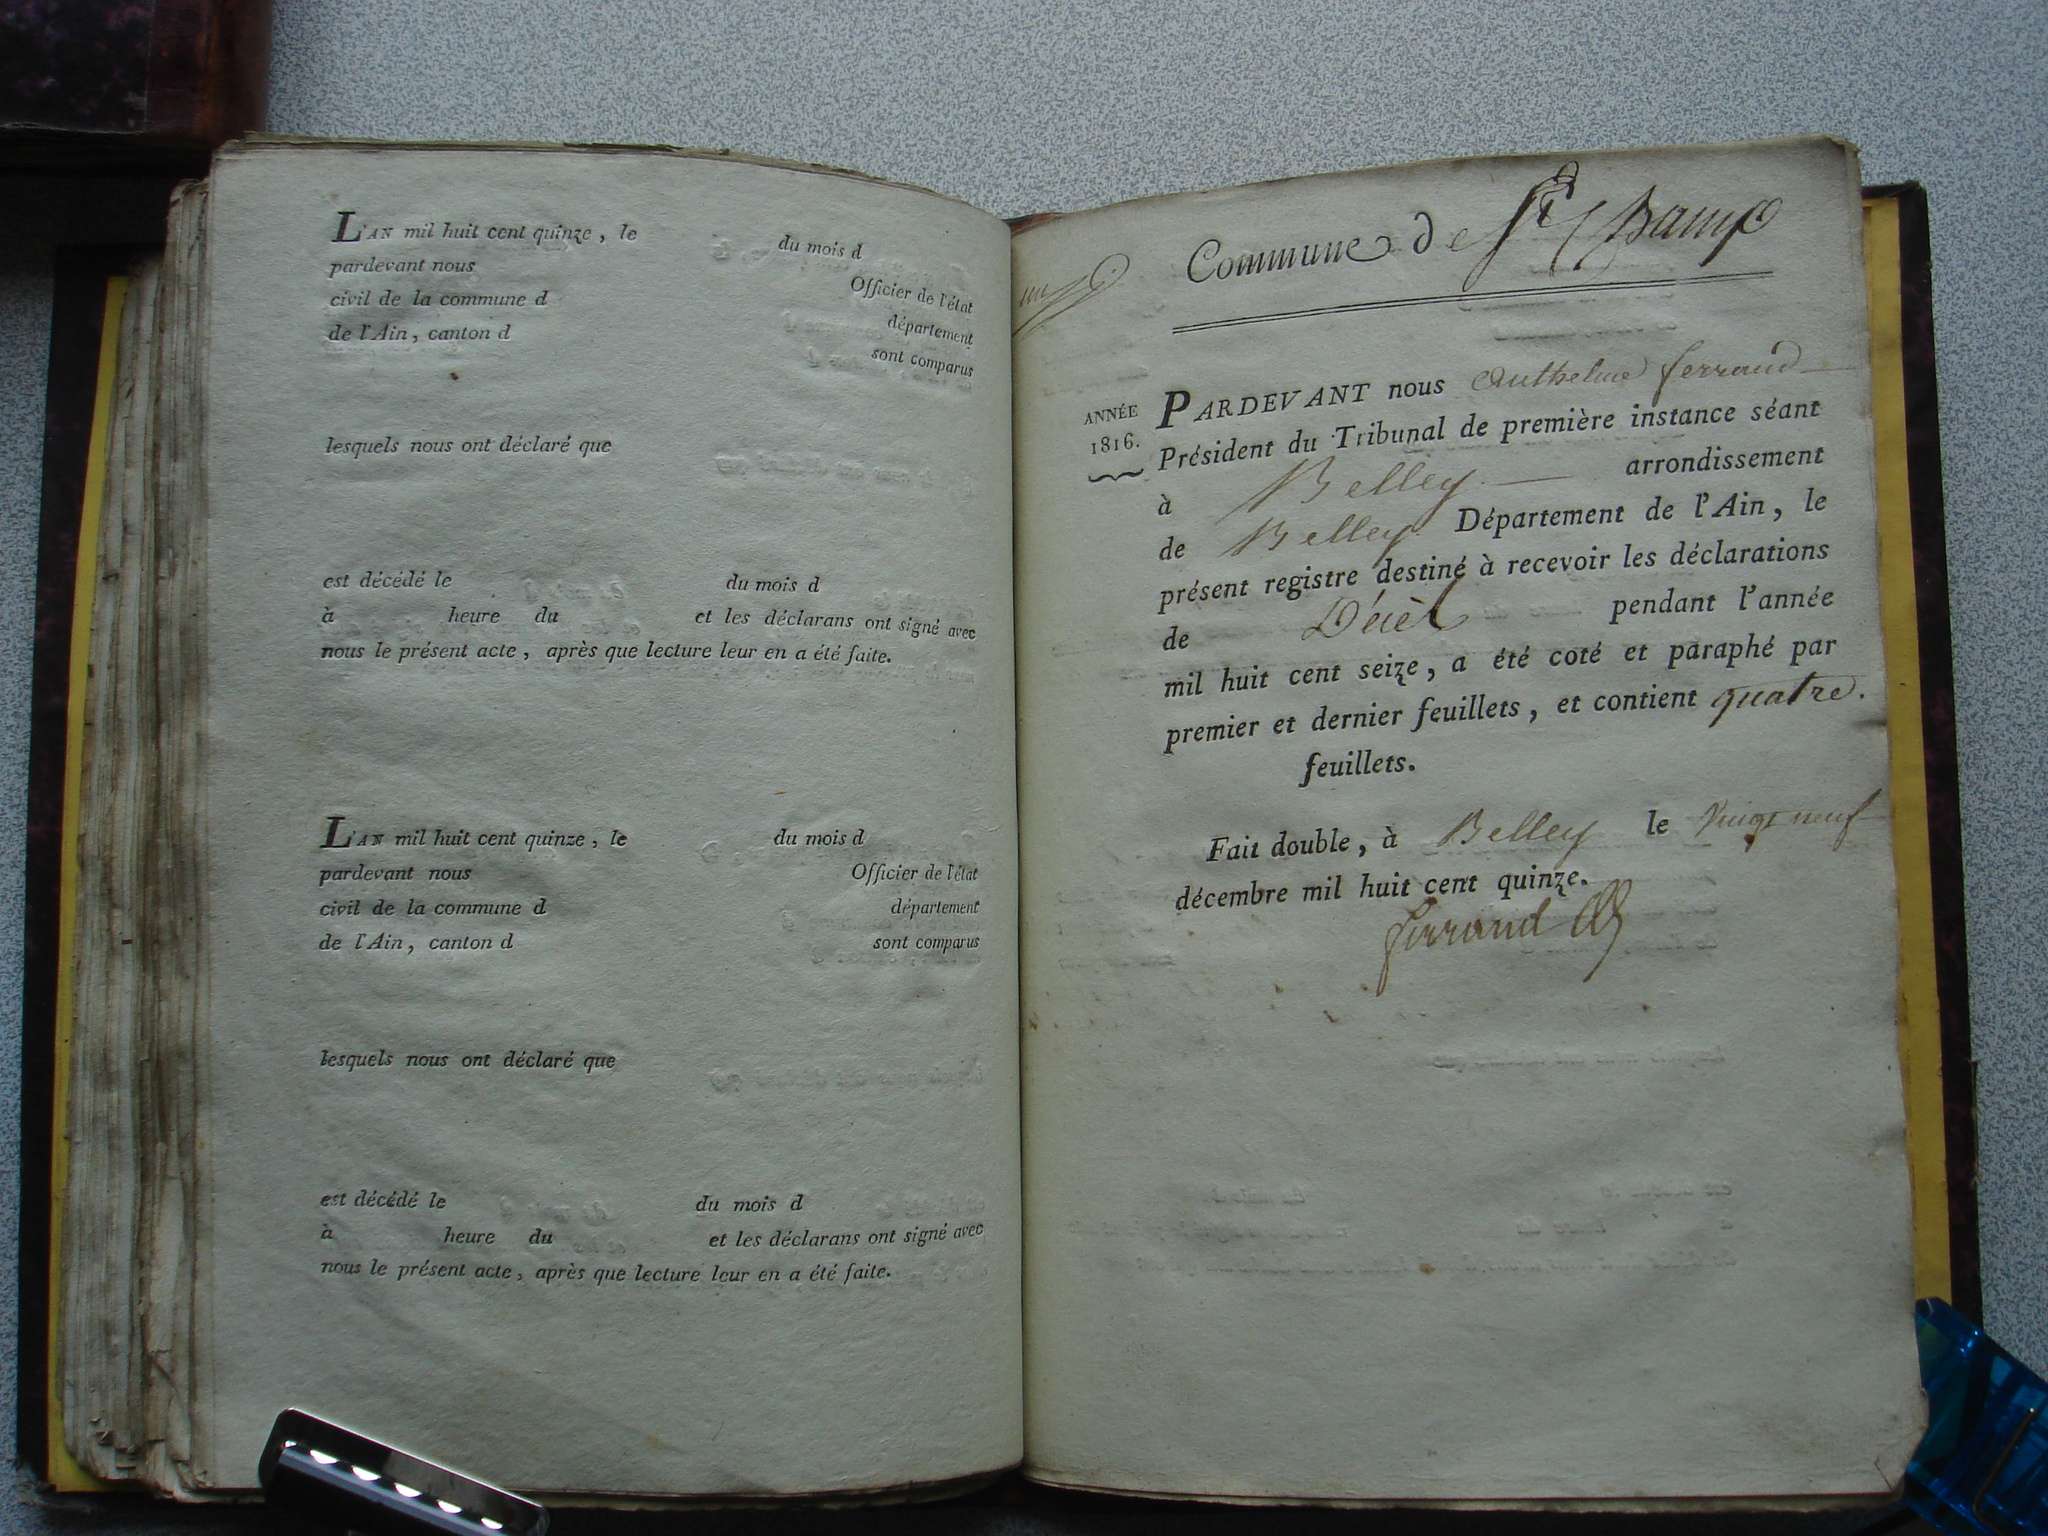 L'AN mil huit cent quinze, le du mois d
pardevant nous Officier de l'état
civil de la commune d département
de l'Ain, canton d sont comparus
lesquels nous ont déclaré que
est décédé le du mois d
à heure du et les déclarans ont signé avec
nous le présent acte, après que lecture leur en a été faite.
L'AN mil huit cent quinze, le du mois d
pardevant nous Officier de l'état
civil de la commune d département
de l'Ain, canton d sont comparus
lesquels nous ont déclaré que
est décédé le du mois d
à heure du et les déclarans ont signé avec
nous le présent acte, après que lecture leur en a été faite.
Commune de St
ANNÉE
1816.
PARDEVANT nous Anthelme ferrand
Président du Tribunal de première instance séant
à Belley arrondissement
de Belley Département de l'Ain, le
présent registre destiné à recevoir les déclarations
de Décès pendant l'année
mil huit cent seize, a été coté et paraphé par
premier et dernier feuillets, et contient quatre.
feuillets.
Fait double, à Belley le vingt neuf
décembre mil huit cent quinze.
ferrand